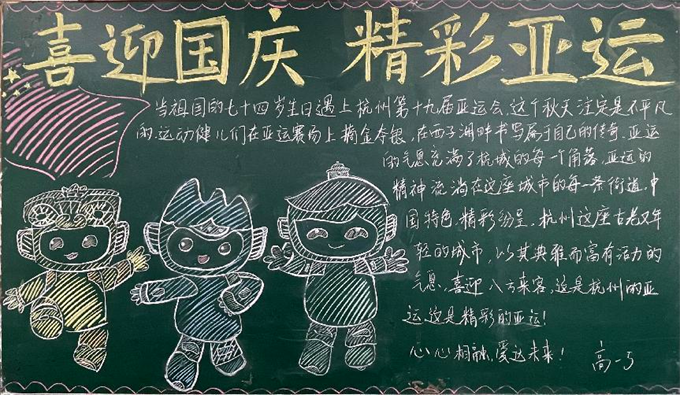 喜迎国庆 精彩亚运
当祖国的七十四岁生日遇上杭州第十九届亚运会,这个秋天注定是不平凡
的.运动健儿们在亚运赛场上摘金夺银,在西子湖畔书写属于自己的传奇.亚运
的气息充满了杭城的每一个角落,亚运的
精神流淌在这座城市的每一条街道.中
国特色,精彩纷呈,杭州这座古老又年
轻的城市,以其典雅而富有活力的
气息,喜迎八方来客,这是杭州的亚
运,这是精彩的亚运!
心心相融,爱达未来!
高一5